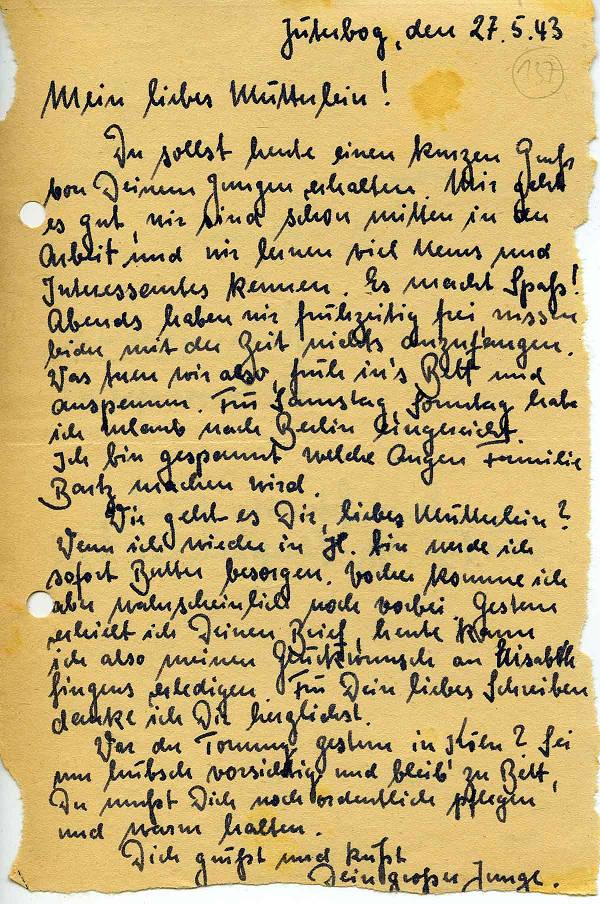 Jüterbog, den 27.5.43
137
Mein liebes Mütterlein!
Du sollst heute einen kurzen Gruß
von Deinem Jungen erhalten. Mir geht
es gut, wir sind schon mitten in der
Arbeit und wir lernen viel Neues und
Interessantes kennen. Es macht Spaß!
Abends haben wir frühzeitig frei wissen
leider mit der Zeit nichts anzufangen.
Was tuen wir also, früh in's Bett und
ausspannen. Für Samstag, Sonntag habe
ich Urlaub nach Berlin eingereicht.
Ich bin gespannt welche Augen Familie
Bartz machen wird.
Wie geht es Dir, liebes Mütterlein?
Wenn ich wieder in H. bin werde ich
sofort Butter besorgen. Vorher komme ich
aber wahrscheinlich noch vorbei. Gestern
erhielt ich Deinen Brief, heute kann
ich also meinen Glückwunsch an Elisabeth
erledigen. Für Dein liebes Schreiben
danke ich Dir herzlichst.
War der Tommy gestern in Köln? Sei
nur hübsch vorsichtig und bleib' zu Bett,
Du mußt Dich noch ordentlich pflegen
und warm halten.
Dich grüßt und küßt
Dein großer Junge.